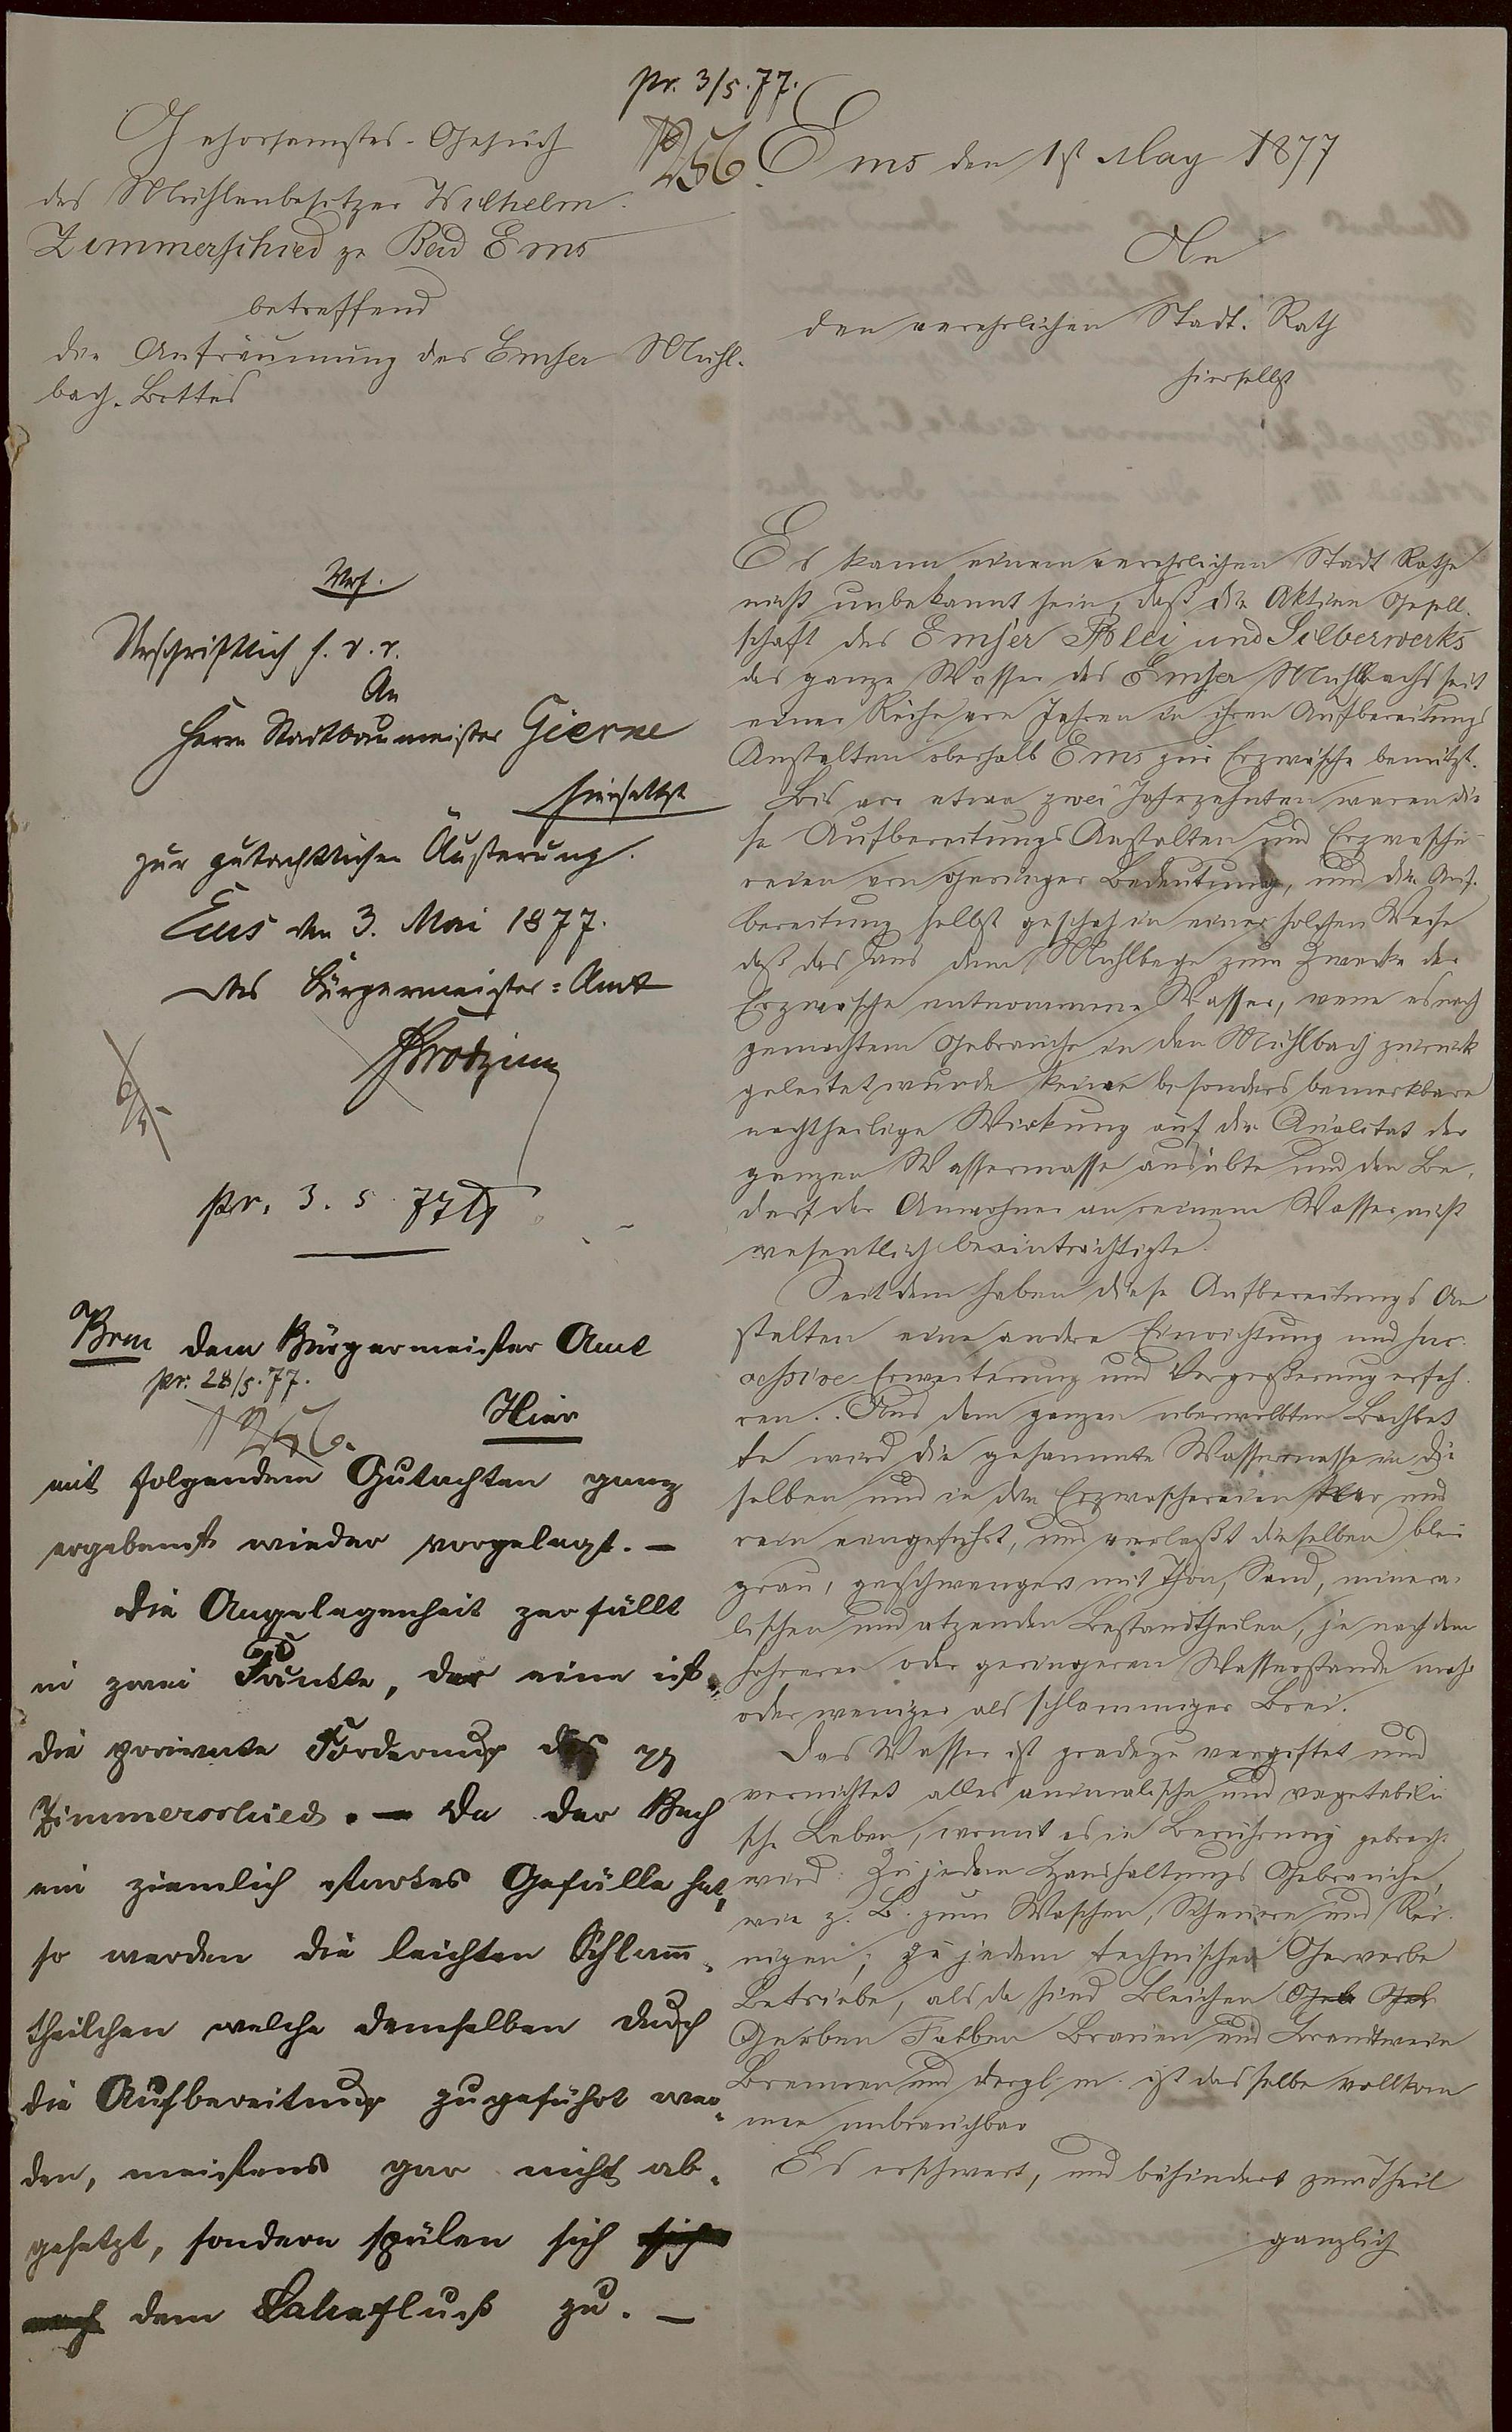 pr. 3/5. 77.
Gehorsamstes-Gesuch
des Mühlenbesitzer Wilhelm
Zimmerschied zu Bad Ems
betreffend
die Aufräumung des Emser Mühl-
bach-Bettes
256.
Ems den 1st May 1877
An
den verehrlichen Stadt-Rath
hierselbst
Vrf.
Urschriftlich s. v. r.
An
Herrn Stadtbaumeister Gierne
hierselbst
zur gutachtlichen Äußerung.
Ems den 3. Mai 1877.
Das Bürgermeister-Amt
pr. 3. 5. 77
Brm dem Bürgermeister Amt
pr. 28/5. 77.
Hier
256.
mit folgendem Gutachten ganz
ergebenst wieder vorgelegt. —
Die Angelegenheit zerfällt
in zwei Punkte, der eine ist
die private Forderung des
Zimmerschied. — Da der Bach
ein ziemlich starkes Gefälle hat,
so werden die leichten Schlamm-
theilchen welche demselben durch
die Aufbereitung zugeführt wer-
den, meistens gar nicht ab-
gesetzt, sondern spülen sich sich
nach dem Lahnfluß zu. —
Es kann einem verehrlichen Stadt Rathe
nicht unbekannt sein, daß die Aktien Gesell-
schaft des Emser Blei und Silberwerks
das ganze Wasser des Emser Mühlbachs seit
einer Reihe von Jahren in ihren Aufbereitungs
Anstalten oberhalb Ems zur Erzwäsche benützt.
Bis vor etwa zwei Jahrzehnten waren die
se Aufbereitungs Anstalten und Erzwäsche-
reien von geringer Bedeutung, und die Auf-
bereitung selbst geschah in einer solchen Weise
daß das aus dem Mühlbache zum Zwecke der
Erzwäsche entnommene Wasser, wenn es nach
gemachtem Gebrauche in den Mühlbach zurück
geleitet wurde keine besonders bemerkbare
nachtheilige Wirkung auf die Qualitat der
ganzen Wassermasse ausübte und den Be-
darf der Anwohner an reinem Wasser nicht
wesentlich beeinträchtigte.
Seitdem haben diese Aufbereitungs An
stalten eine andre Einrichtung und suc-
cessive Erweiterung und Vergrößerung erfah-
ren. Aus dem ganzen uberwolbten Bachbet
te wird die gesammte Wassermasse in die
selben und in die Erzwaschereien klar und
rein eingeführt, und verlaßt dieselben blei
grau, geschwangert mit Thon, Sand, minera-
lischen und atzenden Bestandtheilen, je nach dem
hoheren oder geringeren Wasserstande mehr
oder weniger als schlammiger Brei.
Das Wasser ist gradezu vergiftet und
vernichtet alles animalische und vegetabili
sche Leben, womit es in Beruhrung gebracht
wird. Zu jedem Haushaltungs Gebrauche,
wie z. B. zum Waschen, Scheuern und Rei-
nigen; zu jedem technischen Gewerbe
Betriebe, als da sind Bleichen Geb Geb
Gerben Farben Brauen und Brandtwein
Brennen und dergl. m. ist dasselbe vollkom
men unbrauchbar
Es erschwert, und behindert zum Theil
ganzlich